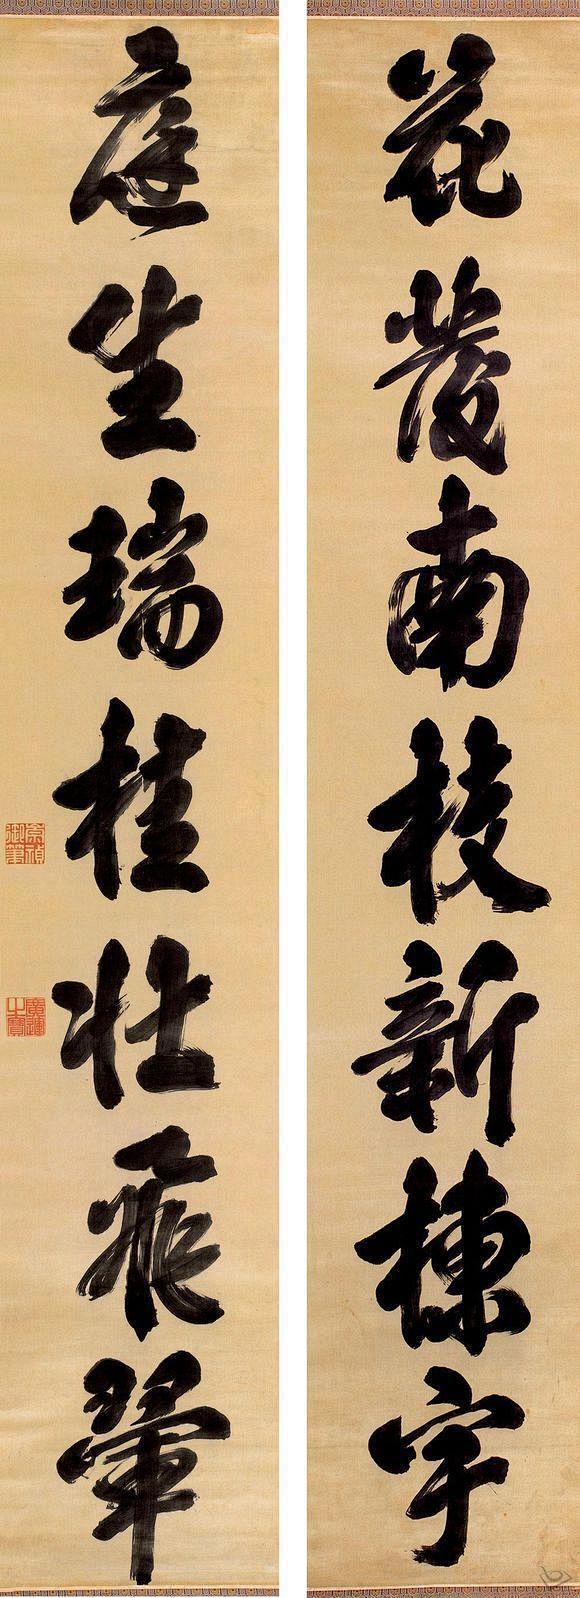 花發南枝新棟宇
庭生瑞桂壯飛翬
崇禎御筆
廣運之寶